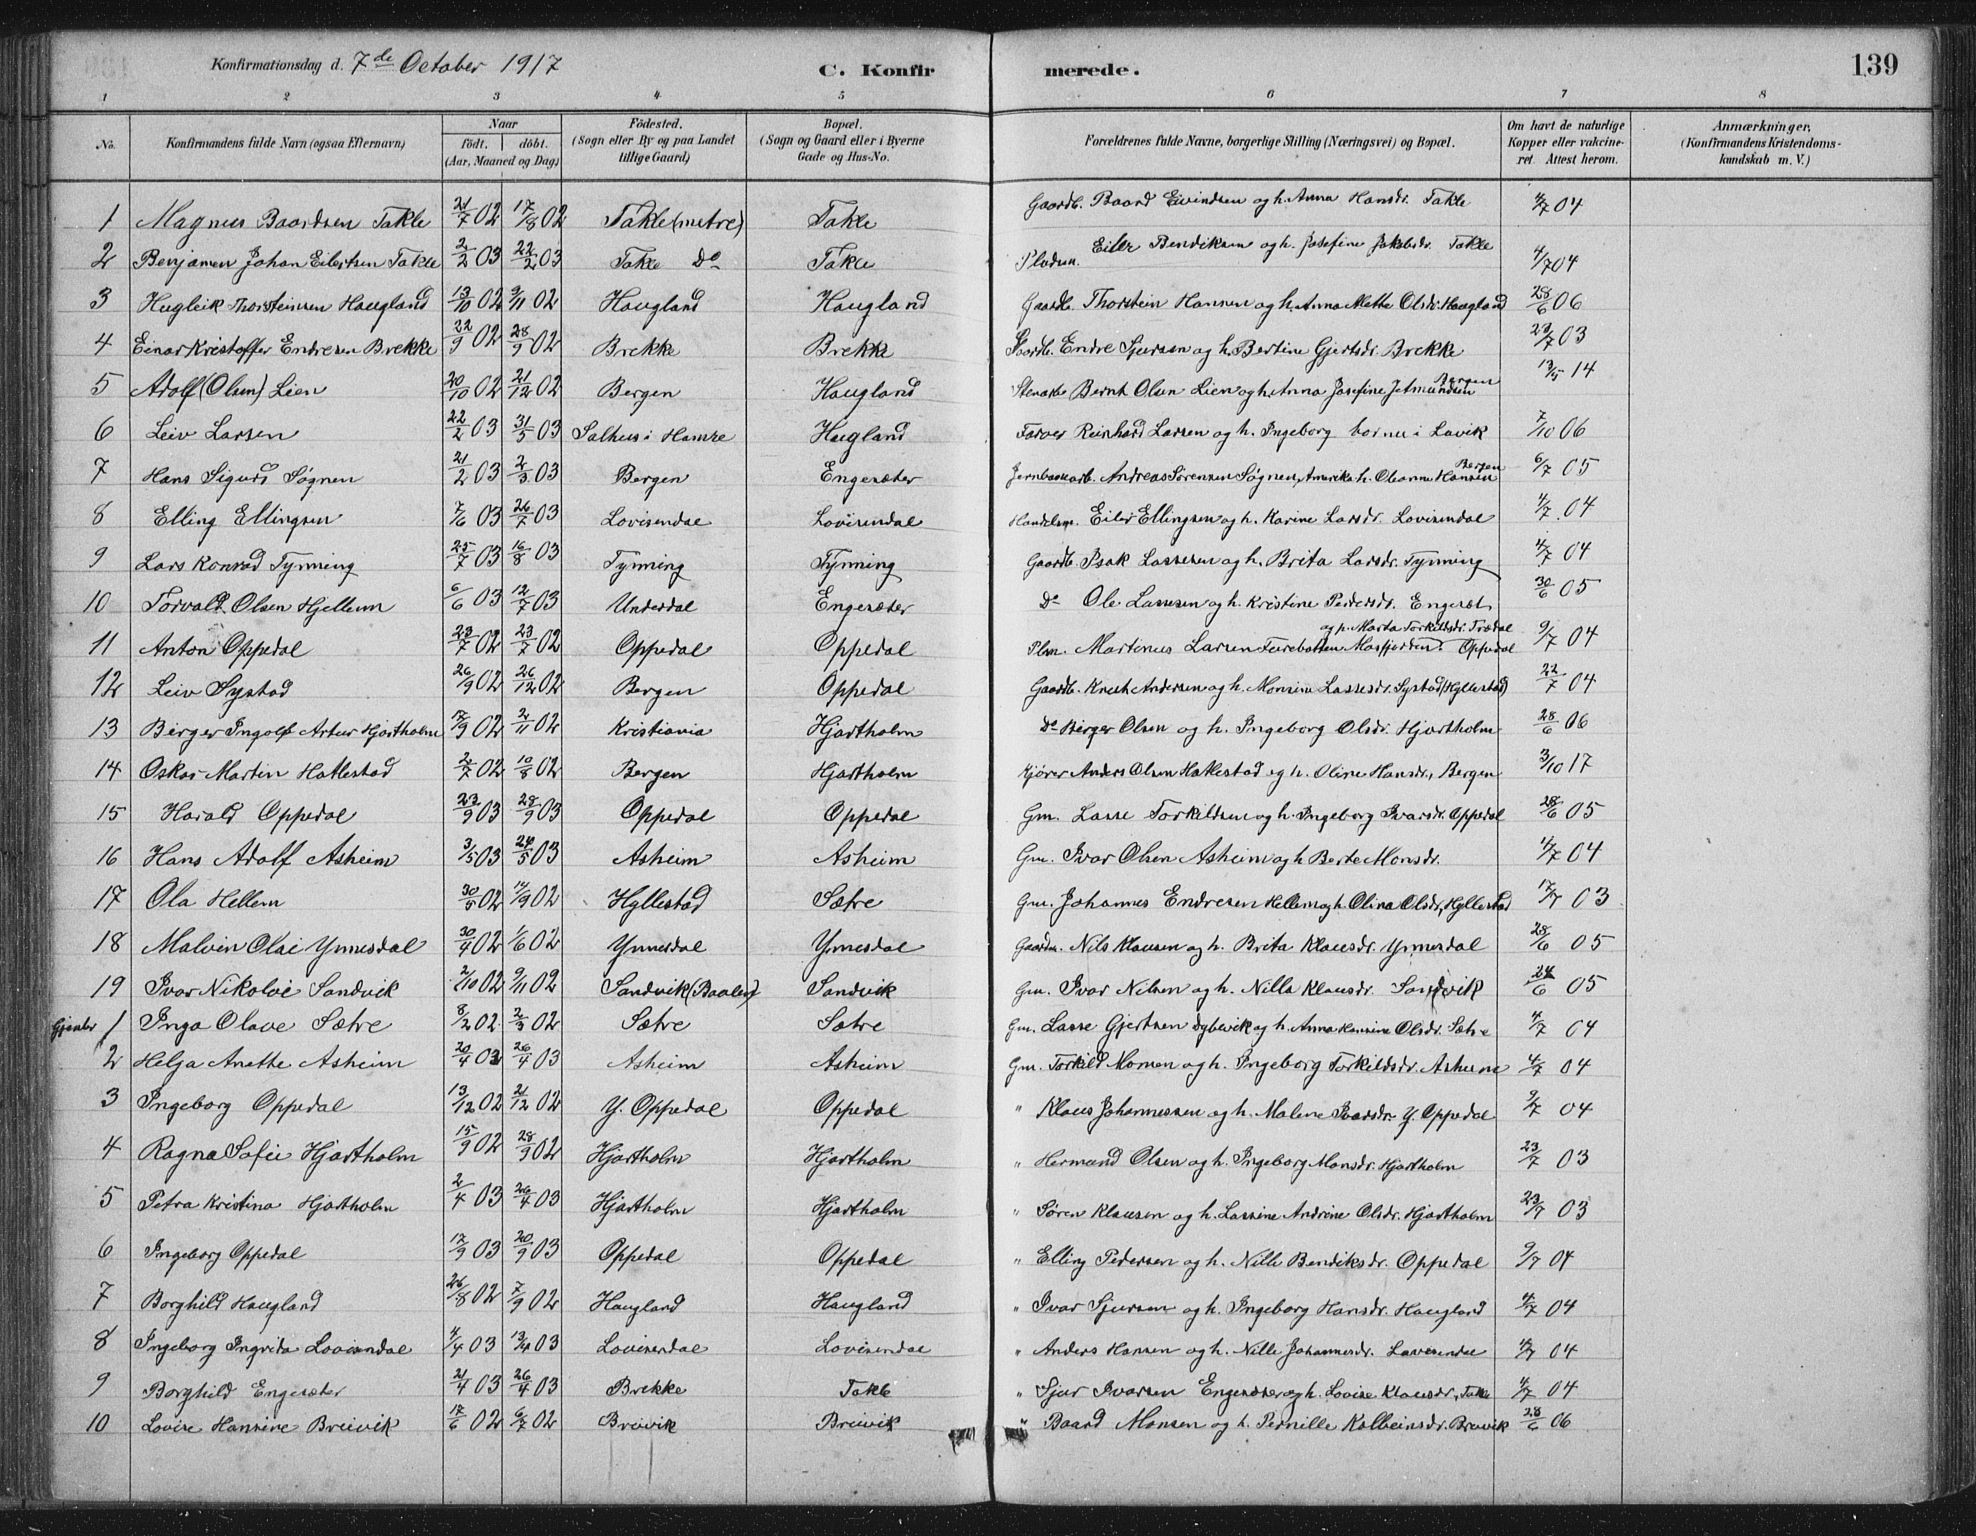 Konfirmationsdag d. 7de October 1917 C. Konfirmerede. 139
1 2 3 4 5 6 7 8
No. Konfirmandens fulde Navn (ogsaa Efternavn) Naar født. døbt. (Aar, Maaned og Dag) Fødested. (Sogn eller By og paa Landet tillige Gaard) Bopæl. (Sogn og Gaard eller i Byerne Gade og Hus-No. Forældrenes fulde Navne, borgerlige Stilling (Næringsvei) og Bopæl. Om havt de naturlige Kopper eller vakcineret. Attest herom. Anmærkninger, (Konfirmandens Kristendomskundskab m. V.)
1 Magnus Baardsen Takle 21/7 02 17/8 02 Takle (metre) Takle Gaardb. Baard Eivindsen og h. Anna Hansdr. Takle 4/7 04
2 Benjamen Johan Eilertsen Takle 2/2 03 22/2 03 Takle Do Takle Pladsm. Eiler Bendiksen og h. Josefine Jakobsdr. Takle 4/7 04
3 Hugleik Thorsteinsen Haugland 13/10 02 9/11 02 Haugland Haugland Gaardb. Thorstein Hansen og h. Anna Mette Olsdr. Haugland 28/6 06
4 Einar Kristoffer Endresen Brekke 22/9 02 28/9 02 Brekke Brekke Gaardb. Endre Sjursen og h. Bertine Gjertsdr. Brekke 23/7 03
5 Adolf (Olsen) Lien 20/10 02 21/12 02 Bergen Haugland Stenarb. Bernt Olsen Lien og h. Anna Josefine Jetmundsen Bergen 13/5 14
6 Leiv Larsen 22/2 03 31/5 03 Salhus i Hamre Haugland Farver Reinhard Larsen og h. Ingeborg bornu i Lavik 7/10 06
7 Hans Sigurd Søgnen 21/2 03 2/3 03 Bergen Engesæter Jernbanearb. Andreas Sørensen Søgnen, Amerika h. Oleanne Hansen Bergen 6/7 05
8 Elling Ellingsen 7/6 03 26/7 03 Lovisendal Lovisendal Handelsm. Eiler Ellingsen og h. Karine Larsdr. Lovisendal 4/7 04
9 Lars Konrad Tynning 25/7 03 16/8 03 Tynning Tynning Gaardb. Isak Lassesen og h. Brita Larsdr. Tynning 4/7 04
10 Torvald Olsen Hjellem 6/6 03 12/7 03 Underdal Engesæter Do Ole Lassesen og h. Kristine Pedersdr. Engesæt 30/6 05
11 Anton Oppedal 23/7 02 23/7 02 Oppedal Oppedal Plm. Martinus Larsen Furebotten Masfjorden. og p. Marta Torkildsdr. Trædal Oppedal 9/7 04
12 Leiv Systad 26/9 02 26/12 02 Bergen Oppedal Gaardb. Knut Andersen og h. Monsine Lassesdr. Systad (Hyllestad) 22/7 04
13 Birger Ingolf Artur Hjartholm 17/9 02 2/11 02 Kristiania Hjartholm Do Birger Olsen og h. Ingeborg Olsdr. Hjartholm 28/6 06
14 Oskar Martin Hatlestad 2/7 02 10/8 02 Bergen Hjartholm Kjører Anders Olsen Hatlestad og h. Oline Hansdr., Bergen 3/10 17
15 Harald Oppedal 23/9 03 28/9 03 Oppedal Oppedal Gm. Lasse Torkildsen og h. Ingeborg Ivarsdr. Oppedal 28/6 05
16 Hans Adolf Asheim 3/5 03 24/5 03 Asheim Asheim Gm. Ivar Olsen Asheim og h. Berte Monsdr. 4/7 04
17 Ola Hellem 30/5 02 14/9 02 Hyllestad Sætre Gm. Johannes Endresen Hellem og h. Olina Olsdr., Hyllestad 17/7 03
18 Malvin Olai Ynnesdal 30/4 02 1/6 02 Ynnesdal Ynnesdal Gaardm. Nils Klausen og h. Brita Klausdr. Ynnesdal 28/6 05
19 Ivar Nikolai Sandvik 2/10 02 9/11 02 Sandvik (Baalen) Sandvik Gm. Ivar Nilsen og h. Nilla Klausdr. Sandvik 24/6 05
Gjenter 1 Inga Olave Sætre 8/2 02 2/3 02 Sætre Sætre Gm. Lasse Gjertsen Dybevik og h. Anna Hansine Olsdr. Sætre 4/7 04
2 Helga Anette Asheim 20/4 03 26/4 03 Asheim Asheim Gm. Torkild Monsen og h. Ingeborg Torkildsdr. Asheim 4/7 04
3 Ingeborg Oppedal 13/12 02 21/12 02 Y. Oppedal Oppedal " Klaus Johannessen og h. Malene Ivarsdr. Y. Oppedal 9/7 04
4 Ragna Sofie Hjartholm 15/9 02 28/9 02 Hjartholm Hjartholm " Hermund Olsen og h. Ingeborg Monsdr. Hjartholm 23/7 03
5 Petra Kristina Hjartholm 2/4 03 26/4 03 Hjartholm Hjartholm " Søren Klausen og h. Lassine Andrine Olsdr. Hjartholm 23/7 03
6 Ingeborg Oppedal 17/9 03 20/9 03 Oppedal Oppedal " Elling Pedersen og h. Nille Bendiksdr. Oppedal 9/7 04
7 Borghild Haugland 26/8 02 7/9 02 Haugland Haugland " Ivar Sjursen og h. Ingeborg Hansdr. Haugland 4/7 04
8 Ingeborg Ingvida Lovisendal 4/4 03 13/4 03 Lovisendal Lovisendal " Anders Hansen og h. Nille Johannesdr. Lavesendal 4/7 04
9 Borghild Engesæter 21/4 03 26/4 03 Brekke Takle " Sjur Ivarsen Engesæter og h. Lovise Klausdr., Takle 4/7 04
10 Lovise Hansine Breivik 17/6 02 6/7 02 Breivik Breivik " Baard Monsen og h. Pernille Kolbeinsdr. Breivik 28/6 06